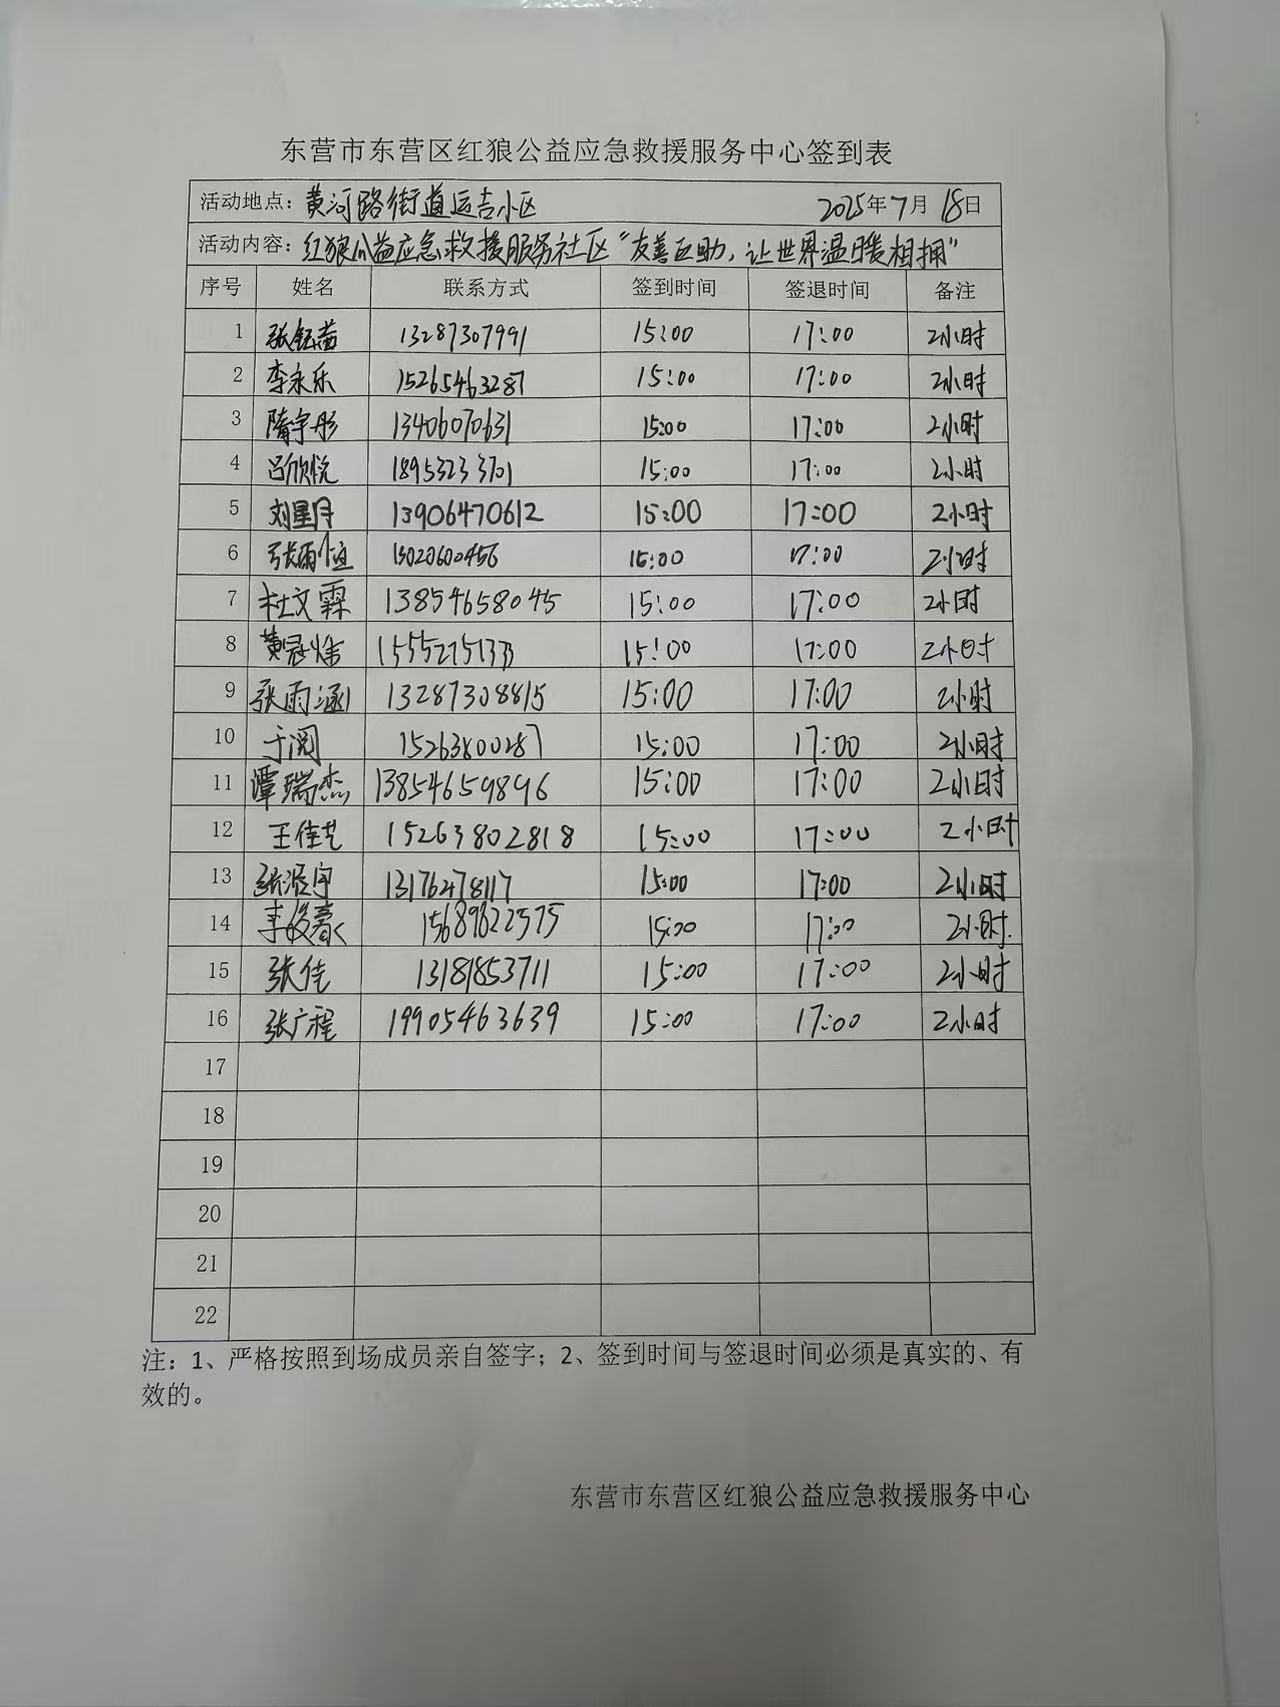 东营市东营区红狼公益应急救援服务中心签到表
活动地点：黄河路街道运吉小区 2025年7月18日
活动内容：红狼公益应急救援服务社区“友善互助，让世界温暖相拥”
序号 姓名 联系方式 签到时间 签退时间 备注
1 13287307991 15:00 17:00 2小时
2 李永乐 15265463287 15:00 17:00 2小时
3 隋宇彤 13406070631 15:00 17:00 2小时
4 吕欣悦 18953233701 15:00 17:00 2小时
5 刘星月 13906470612 15:00 17:00 2小时
6 张雨恒 15:00 17:00 2小时
7 杜文霖 13854658045 15:00 17:00 2小时
8 15:00 17:00 2小时
9 张雨涵 13287308815 15:00 17:00 2小时
10 于阅 15263800287 15:00 17:00 2小时
11 谭瑞杰 13854659896 15:00 17:00 2小时
12 王佳艺 15263802818 15:00 17:00 2小时
13 13176478117 15:00 17:00 2小时
14 15689822575 15:00 17:00 2小时
15 张佳 13181853711 15:00 17:00 2小时
16 张广程 19905463639 15:00 17:00 2小时
17
18
19
20
21
22
注：1、严格按照到场成员亲自签字；2、签到时间与签退时间必须是真实的、有
效的。
东营市东营区红狼公益应急救援服务中心